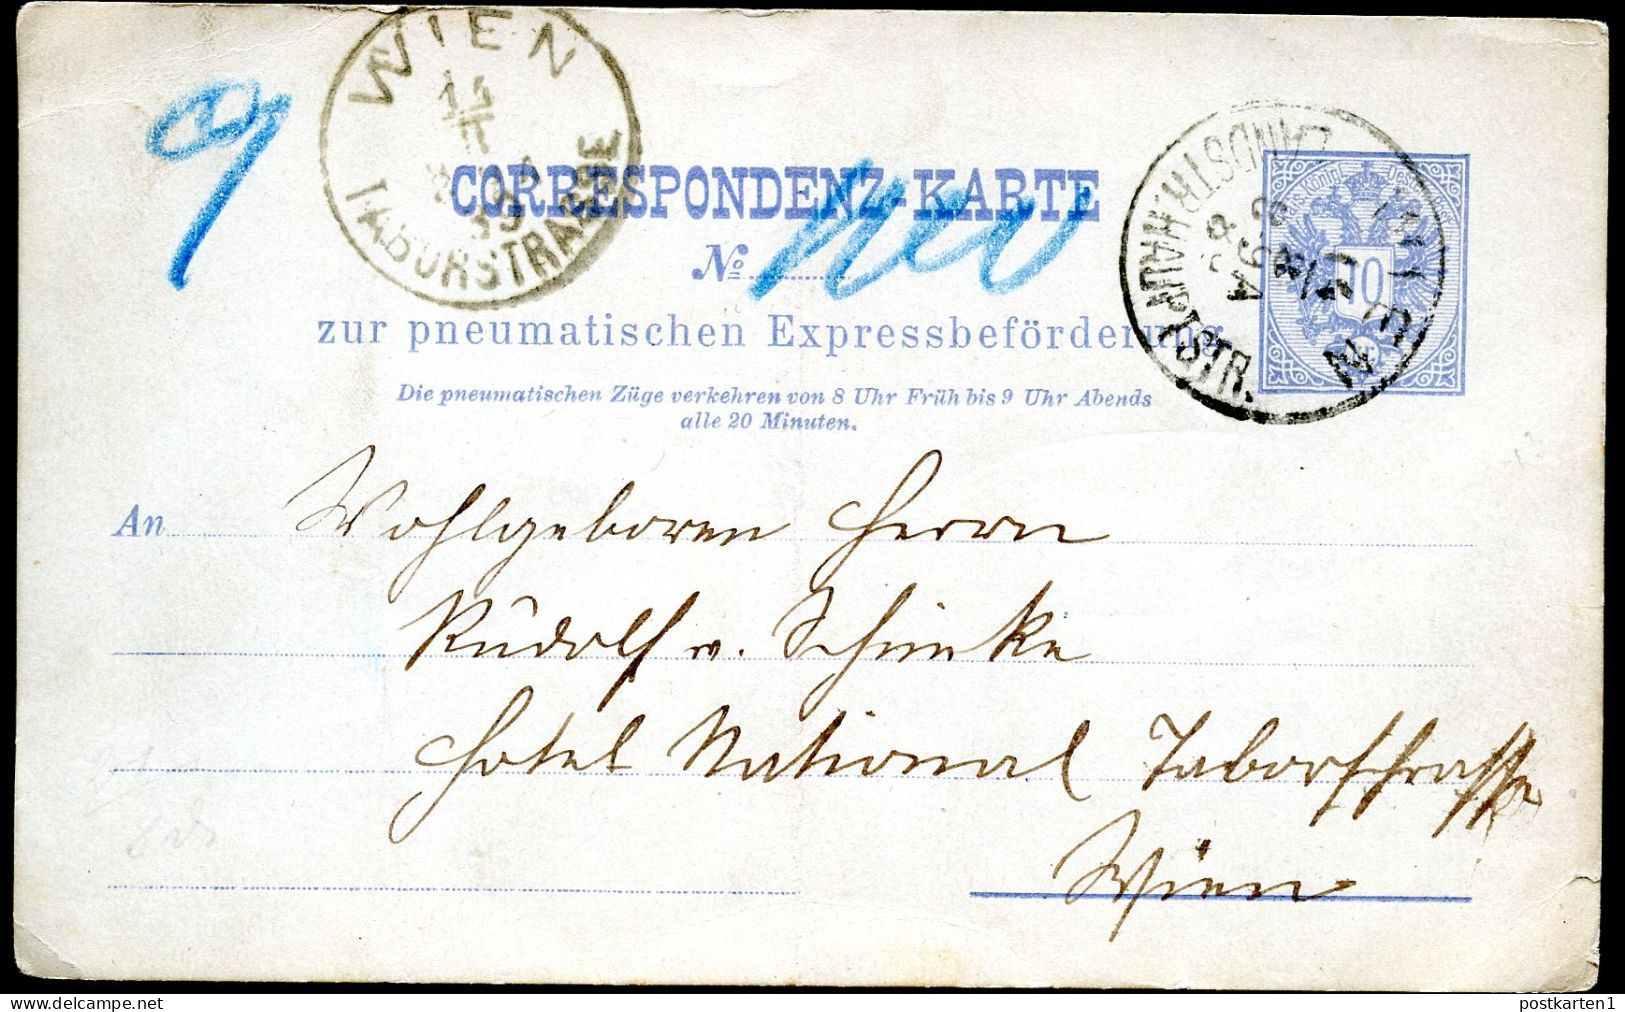 WIEN
14
TABORSTRASSE
9
CORRESPONDENZ-KARTE
No
zur pneumatischen Expressbeförderung
Die pneumatischen Züge verkehren von 8 Uhr Früh bis 9 Uhr Abends
alle 20 Minuten.
WIEN
LANDSTR. HAUPTSTR.
10
An Wohlgeboren Herrn
Rudolf v. Schimke
Hotel National Taborstrasse
Wien
postkarten1